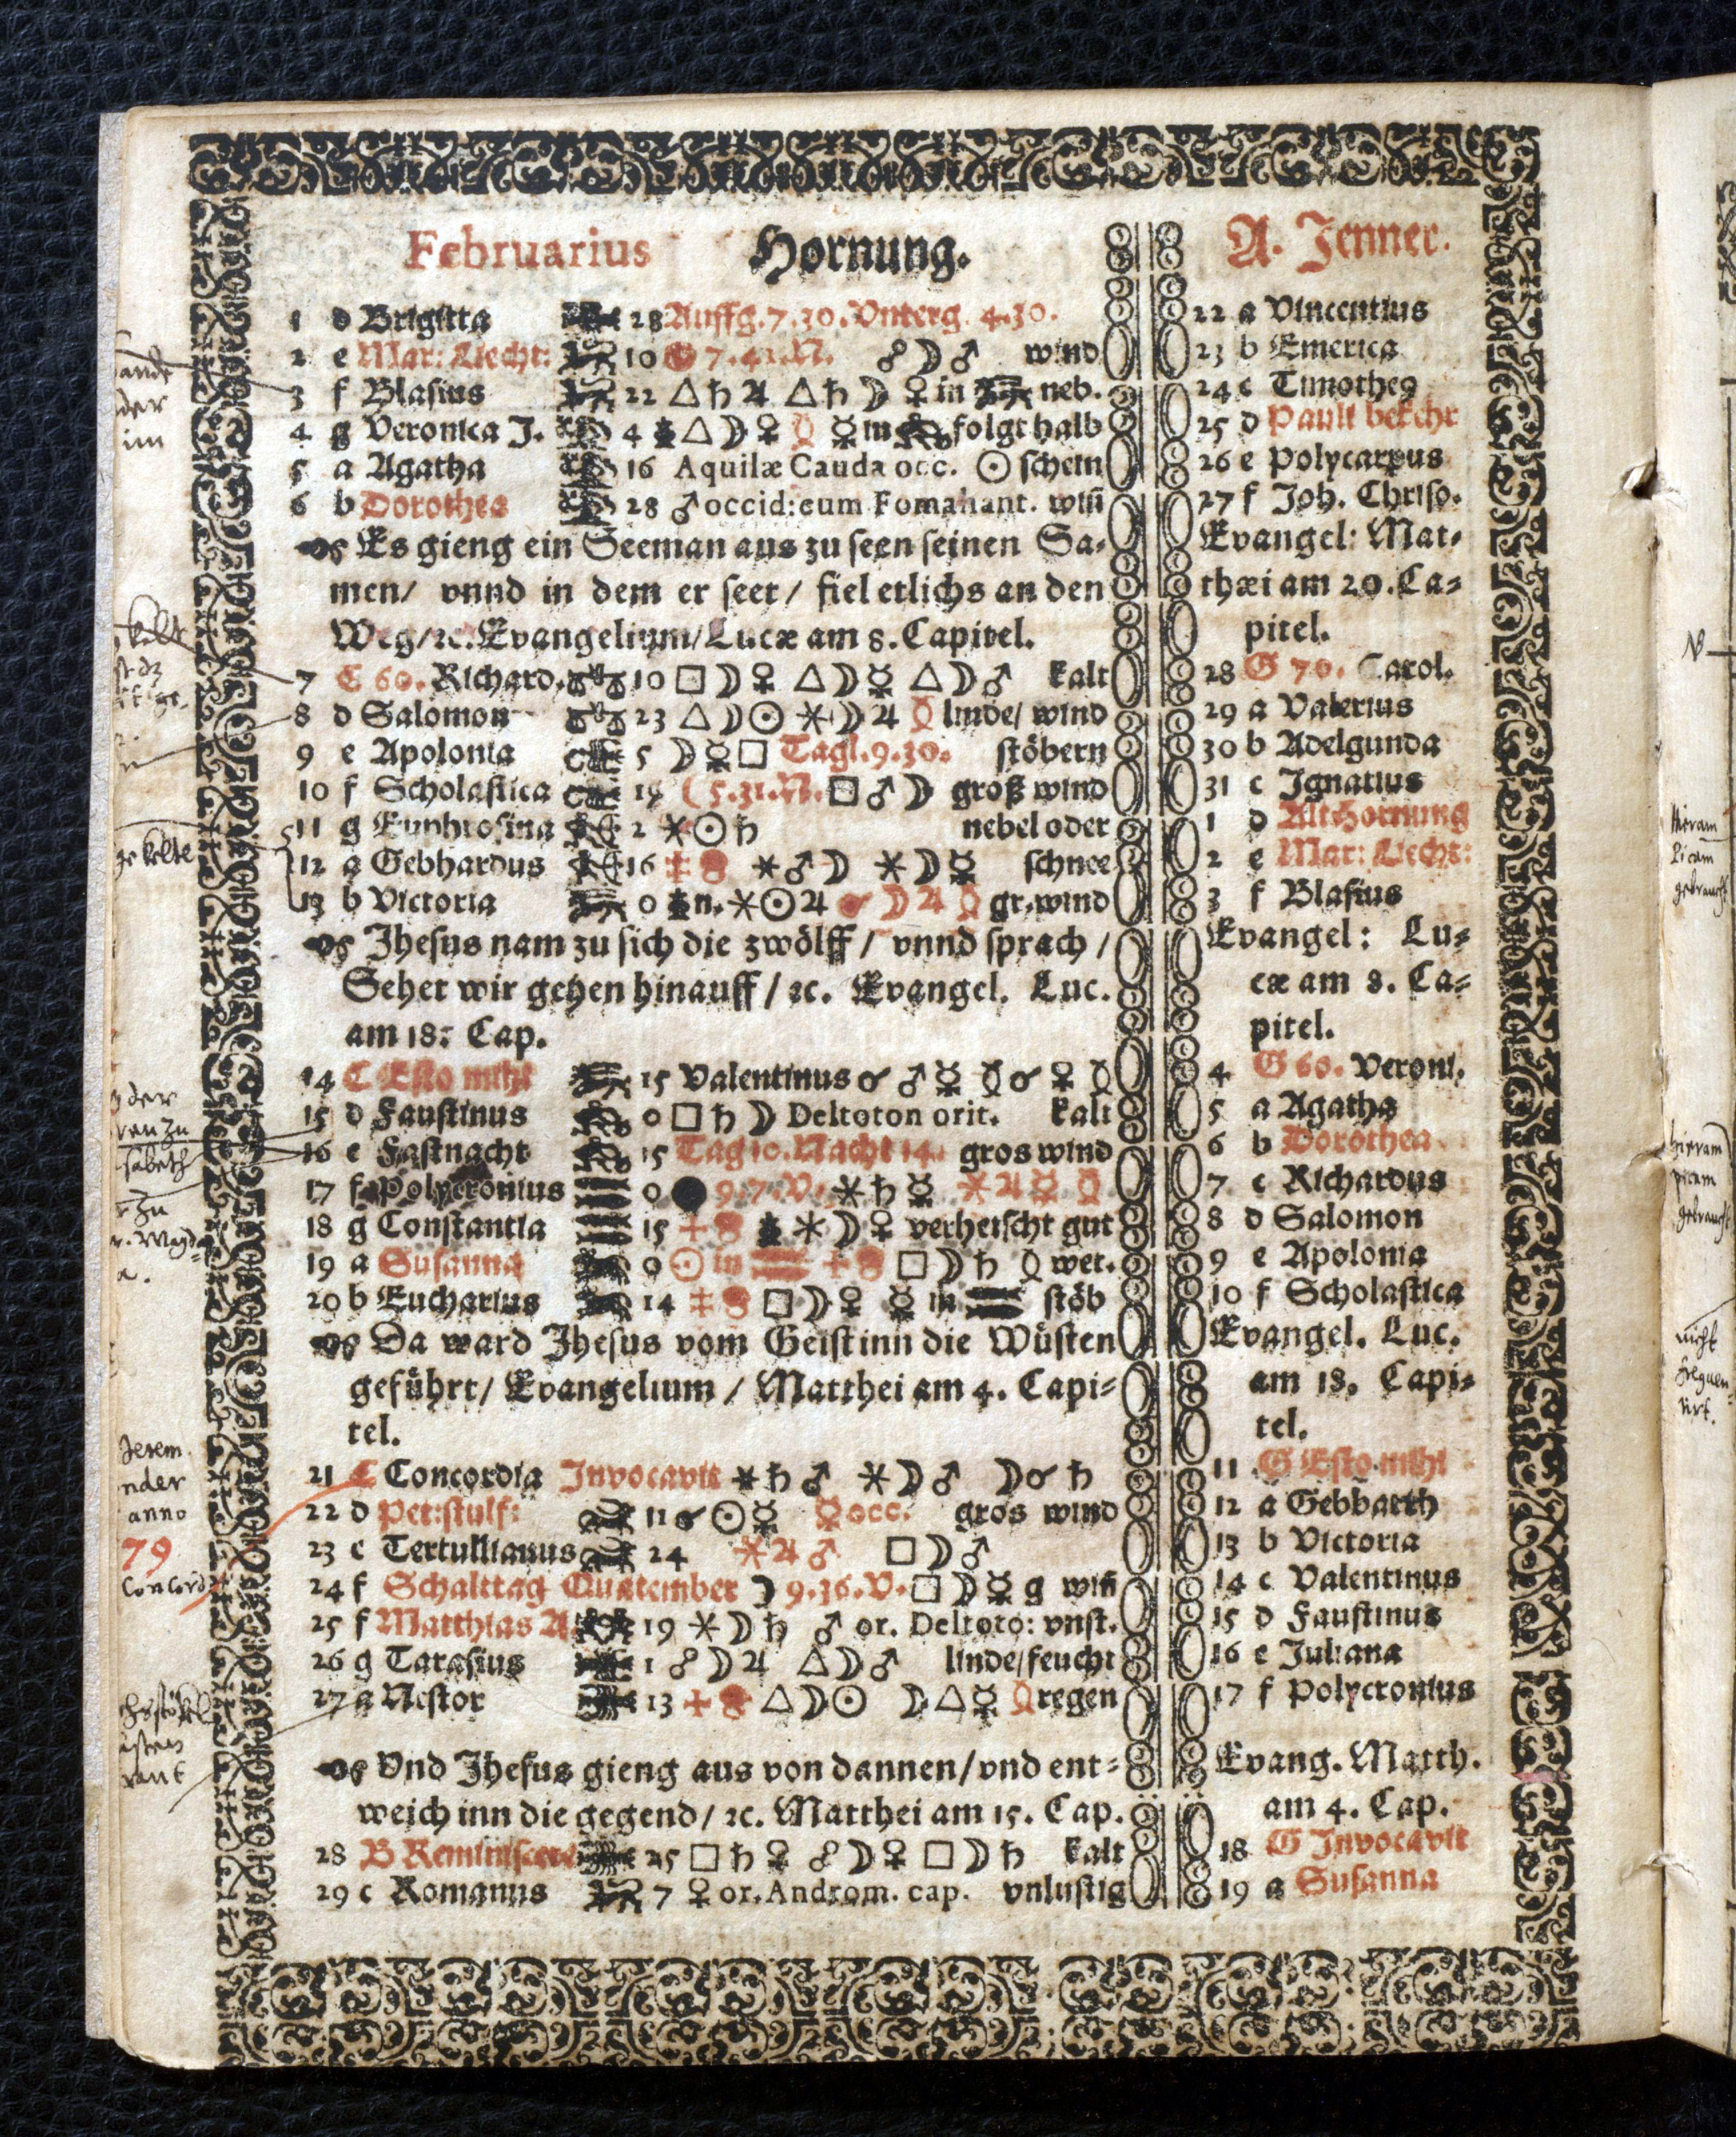 Februarius Hornung.
1 d Brigitta 28 Auffg. 7.30. Vnterg. 4.30.
2 e Mar: Liecht: 10 7.41.N. ☍☽♂ wind
3 f Blasius 22 △♄♃ △♄☽ ♀ in neb.
4 g Veronica J. 4 △☽♀ ☿ in folgt halb
5 a Agatha 16 Aquilæ Cauda occ. ☉ schein
6 b Dorothea 28 ♂ occid: cum Fomahant. wiñ
Es gieng ein Seeman aus zu seen seinen Sa-
men/ vnnd in dem er seet / fiel etlichs an den
Weg/ꝛc. Evangelium/Lucæ am 8. Capitel.
7 C 60. Richard. 10 □☽♀ △☽☿ △☽♂ kalt
8 d Salomon 23 △☽☉ ⚹☽♃ linde/ wind
9 e Apolonia 5 ☽☿□ Tagl. 9.30. stöbern
10 f Scholastica 19 ☾ 5.31.N. □♂☽ groß wind
11 g Euphrosina 2 ⚹☉♄ nebel oder
12 a Gebhardus 16 ⚹♂☽ ⚹☽☿ schnee
13 b Victoria 0 n. ⚹☉♃ ☌☽♃ gr. wind
Jhesus nam zu sich die zwölff / vnnd sprach /
Sehet wir gehen hinauff / ꝛc. Evangel. Luc.
am 18: Cap.
14 C Esto mihi 15 Valentinus ☌♂☿ ☌♀
15 d Faustinus 0 □♄☽ Deltoton orit. kalt
16 e Fastnacht 15 Tag 10. Nacht 14. gros wind
17 f Polycronius 0 ● 9.7.V. ⚹♄☿ ⚹♃☿
18 g Constantia 15 ⚹☽♀ verheischt gut
19 a Susanna 0 ☉ in □☽♄ wet.
20 b Eucharius 14 □☽♀ ☿ in stöb
Da ward Jhesus vom Geist inn die Wüsten
geführt/ Evangelium / Matthei am 4. Capi-
tel.
21 C Concordia Invocavit ⚹♄♂ ⚹☽♂ ☽☌♄
22 d Pet: stulf: 11 ☌☉☿ ☿ occ. gros wind
23 e Tertullianus 24 ⚹♃♂ □☽♂
24 f Schalttag Quatember ☽ 9.36.V. □☽☿ g wiñ
25 f Matthias A. 19 ⚹☽♄ ♂ or. Deltoto: vnst.
26 g Tarasius 1 ☍☽♃ △☽♂ linde/feucht
27 a Nestor 13 △☽☉ ☽△☿ regen
Vnd Jhesus gieng aus von dannen/vnd ent-
weich inn die gegend/ ꝛc. Matthei am 15. Cap.
28 B Reminiscere 25 □♄♀ ☍☽♀ □☽♄ kalt
29 c Romanus 7 ♀ or. Androm. cap. vnlustig
A. Jenner.
22 a Vincentius
23 b Emerica
24 c Timotheꝯ
25 d Pauli bekehr
26 e Polycarpus
27 f Joh. Chriso.
Evangel: Mat-
thæi am 20. Ca-
pitel.
28 G 70. Carol.
29 a Valerius
30 b Adelgunda
31 c Ignatius
1 d Alt Hornung
2 e Mar: Liecht:
3 f Blasius
Evangel: Lu-
cæ am 8. Ca-
pitel.
4 G 60. Veroni.
5 a Agatha
6 b Dorothea
7 c Richardus
8 d Salomon
9 e Apolonia
10 f Scholastica
Evangel. Luc.
am 18. Capi-
tel.
11 G Esto mihi
12 a Gebharth
13 b Victoria
14 c Valentinus
15 d Faustinus
16 e Juliana
17 f Polycronius
Evang. Matth.
am 4. Cap.
18 G Invocavit
19 a Susanna
der
im
kelte
kelte
der
zu
Jerem.
nder
anno
79
Concord
hieram
picam
gebraucht
nicht